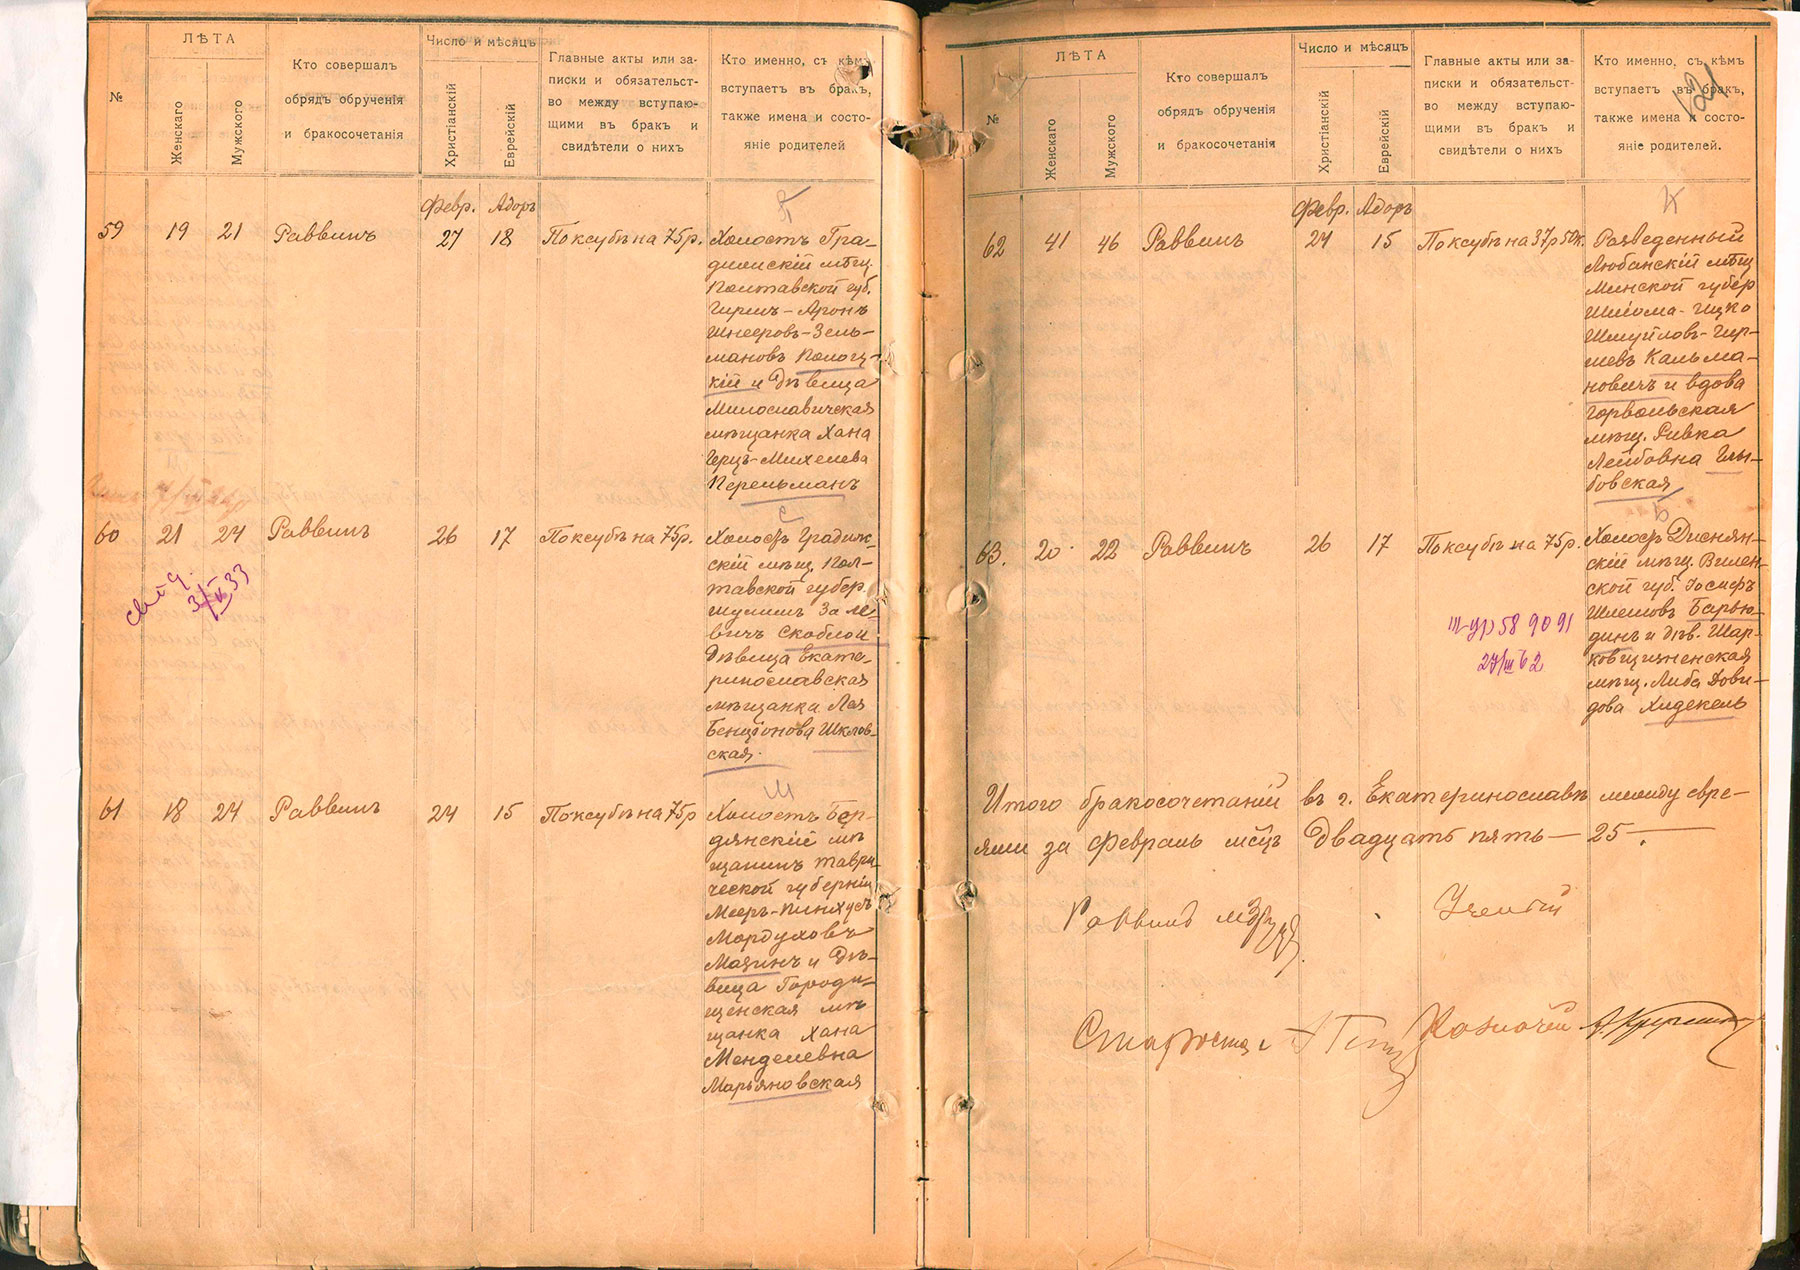 №
ЛѢТА
Женскаго
Мужского
Кто совершалъ
обрядъ обрученія
и бракосочетанія
Число и мѣсяцъ
Христіанскій
Еврейскій
Главные акты или за-
писки и обязательст-
во между вступаю-
щими въ бракъ и
свидѣтели о нихъ
Кто именно, съ кѣмъ
вступаетъ въ бракъ,
также имена и состо-
яніе родителей
Февр. Адоръ
П
59 19 21 Раввинъ 27 18 По ксубѣ на 75 р. Холостъ Гра-
дижскій мѣщ.
Полтавской губ.
Гиршъ-Аронъ
Шнееровъ-Зель-
мановъ Полоц-
кій и дѣвица
Милославичская
мѣщанка Хана
Герцъ-Михелева
Перельманъ
С
60 21 24 Раввинъ 26 17 По ксубѣ на 75 р. Холостъ Градиж-
скій мѣщ. Пол-
тавской губер.
Шулимъ Зале-
вичъ Скаблой
дѣвица Екате-
ринославская
мѣщанка Лея
Бенціонова Шклов-
ская.
М
61 18 24 Раввинъ 24 15 По ксубѣ на 75 р Холостъ Бер-
дянскій мѣ
щанинъ Таври
ческой губерніи
Мееръ-Пинхусъ
Мордуховъ
Мазинъ и дѣ-
вица Городи-
щенская мѣ
щанка Хана
Менделевна
Марьяновская
№
ЛѢТА
Женскаго
Мужского
Кто совершалъ
обрядъ обрученія
и бракосочетанія
Число и мѣсяцъ
Христіанскій
Еврейскій
Главные акты или за-
писки и обязательст-
во между вступаю-
щими въ бракъ и
свидѣтели о нихъ
Кто именно, съ кѣмъ
вступаетъ въ бракъ,
также имена и состо-
яніе родителей.
121
Февр. Адоръ
К
62 41 46 Раввинъ 24 15 По ксубѣ на 37 р 50 к. Разведенный
Любанскій мѣщ
Минской губер
Шліома-Ицко
Шмуйловъ-Гир-
шевъ Кальма-
новичъ и вдова
Горвольская
мѣщ. Ривка
Лейбовна Глы-
бовская
63. 20 22 Раввинъ 26 17 По ксубѣ на 75 р. Холостъ Диснян-
скій мѣщ. Вилен-
ской губ. Іосифъ
Шлемовъ Барью-
динъ и дѣв. Шар-
ковщизненская
мѣщ. Либа Дови-
дова Хидекель
58 90 91
27/III 62
Итого бракосочетаній въ г. Екатеринославѣ между евре-
ями за февраль мсцъ двадцать пять — 25 —.
Раввинъ Ученый
Староста Казначей